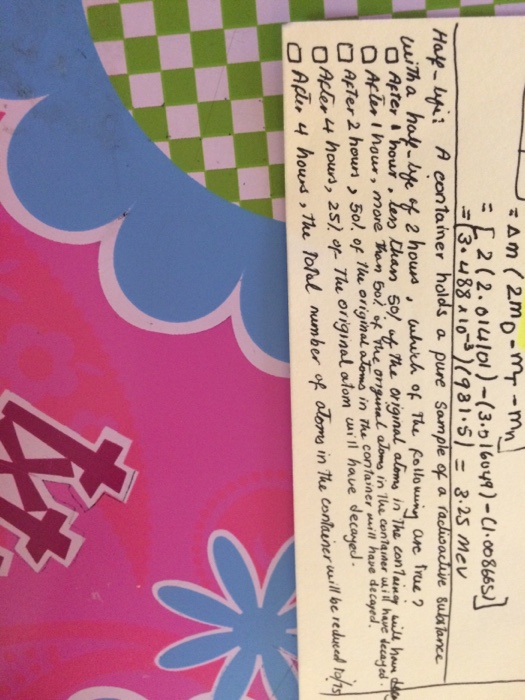 = Δm (2mD - mT - mn)
= [2(2.014101) - (3.016049) - (1.008665)]
= (3.488×10⁻³)(931.5) = 3.25 MeV
Half-life: A container holds a pure sample of a radioactive substance
with a half-life of 2 hours, which of the following are true?
□ After 1 hour, less than 50% of the original atoms in the container will have
□ After 1 hour, more than 50% of the original atoms in the container will have decayed.
□ After 2 hours, 50% of the original atoms in the container will have decayed.
□ After 4 hours, 25% of the original atom will have decayed.
□ After 4 hours, the total number of atoms in the container will be reduced to